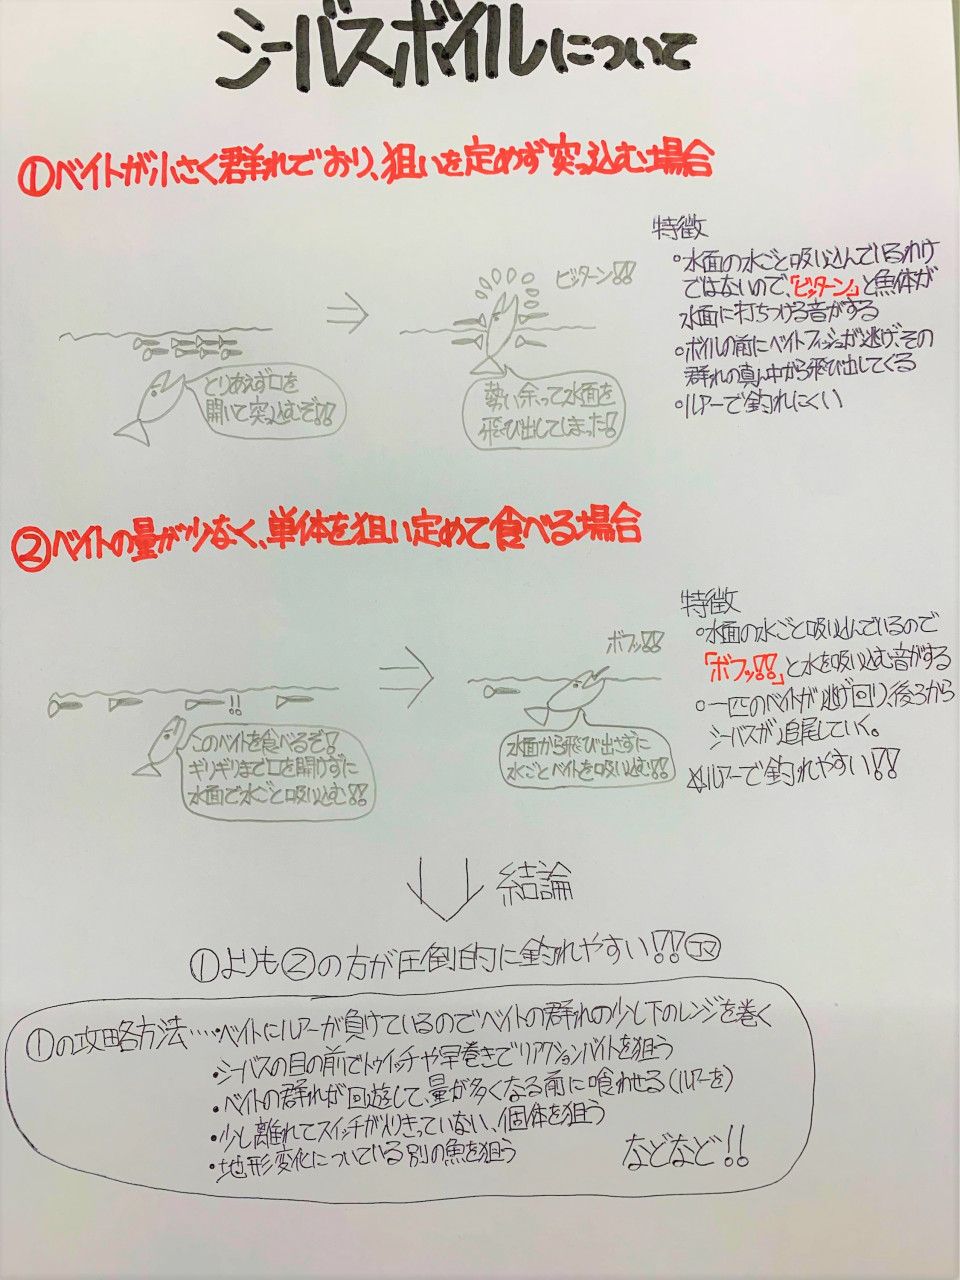 シーバスボイルについて
①ベイトが小さく群れており、狙いを定めず突っ込む場合
ビッターン!!
とりあえず口を
開いて突っ込むぞ!!
勢い余って水面を
飛び出してしまった!
特徴
・水面の水ごと吸い込んでいるわけ
ではないので、「ビッターン」と魚体が
水面に打ちつける音がする
・ボイルの前にベイトフィッシュが逃げ、その
群れの真ん中から飛び出してくる
・ルアーで釣れにくい
②ベイトの量が少なく、単体を狙い定めて食べる場合
ボフッ!!
!!
このベイトを食べるぞ!
ギリギリまで口を開けずに
水面で水ごと吸い込む!!
水面から飛び出さずに
水ごとベイトを吸い込む!!
特徴
・水面の水ごと吸い込んでいるので
「ボフッ!!」と水を吸い込む音がする
・一匹のベイトが逃げ回り、後ろから
シーバスが追尾していく。
☆ルアーで釣れやすい!!
結論
①よりも②の方が圧倒的に釣れやすい!!
①の攻略方法‥‥・ベイトにルアーが負けているのでベイトの群れの少し下のレンジを巻く
・シーバスの目の前でトゥイッチや早巻きでリアクションバイトを狙う
・ベイトの群れが回遊して、量が多くなる前に喰わせる(ルアーを)
・少し離れてスイッチが入りきっていない、個体を狙う
・地形変化についている別の魚を狙う
などなど!!